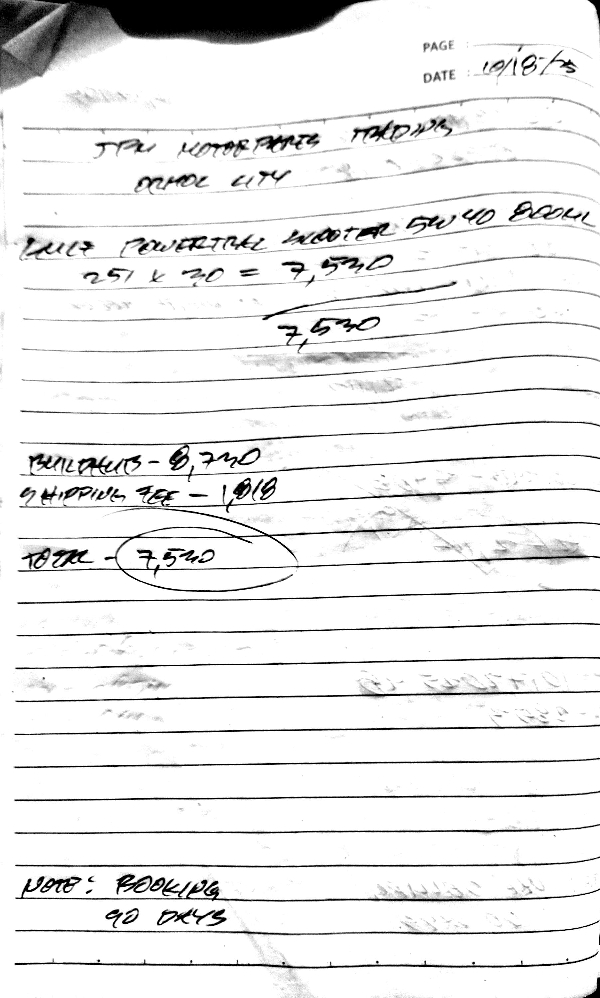 PAGE :
DATE : 10/18/25
JPN MOTORPARTS TRADING
ORMOC CITY
POWERTRAC SCOOTER 5W40 800ML
251 x 30 = 7,530
7,530
- 8,730
SHIPPING FEE - 1,818
TOTAL - 7,530
NOTE: BOOKING
90 DAYS